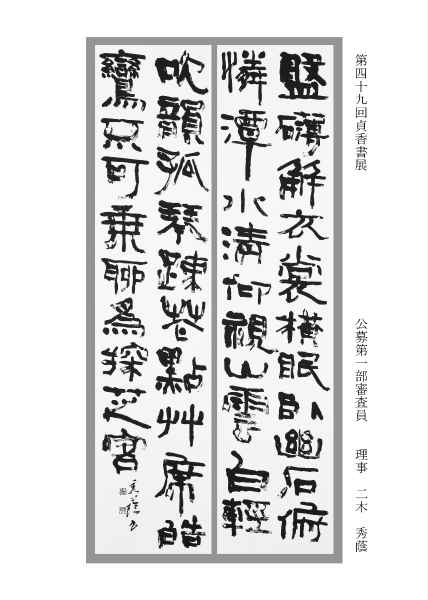 第四十九回貞香書展　公募第一部審査員　理事　二木　秀蔭
盤礴解衣裳横眠臥幽石俯
憐潭水清仰視山雲白輕
吹韻孤琴疎花點艸席皓
鸞只可乗聊爲採芝客